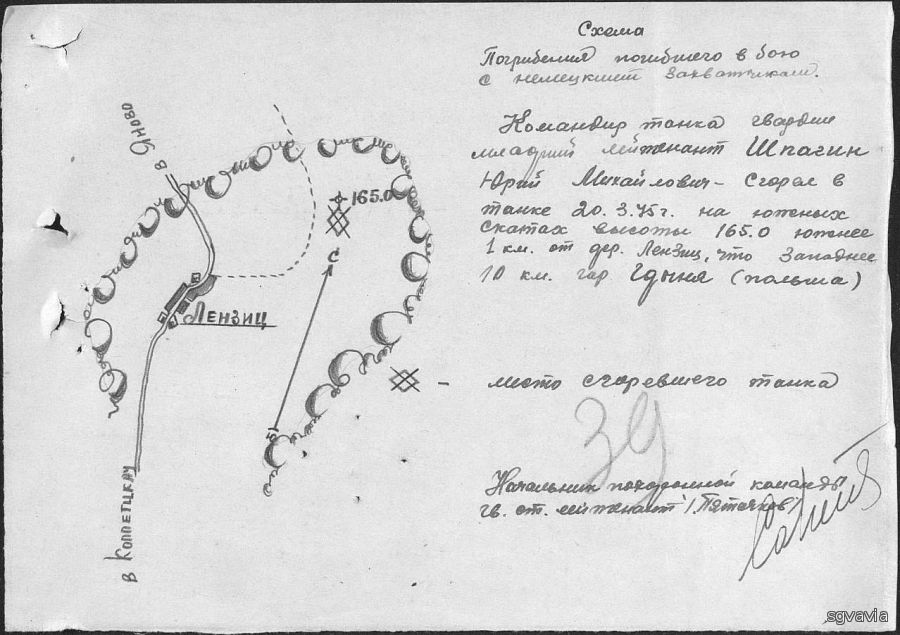 Схема
Погрибения погибшего в бою
с немецкими захватчиками.
Командир танка гвардии
младший лейтенант Шпагин
Юрий Михайлович - Сгорел в
танке 20.3.45г. на южных
скатах высоты 165.0 южнее
1 км. от дер. Лензиц, что Западнее
10 км. гор Гдыня (польша)
в Яново
165.0
С
Лензиц
Ю
в Коллетцкау
- место сгоревшего танка
39
Начальник похоронной команды
гв. ст. лейтенант /Пятачков/
sgvavia